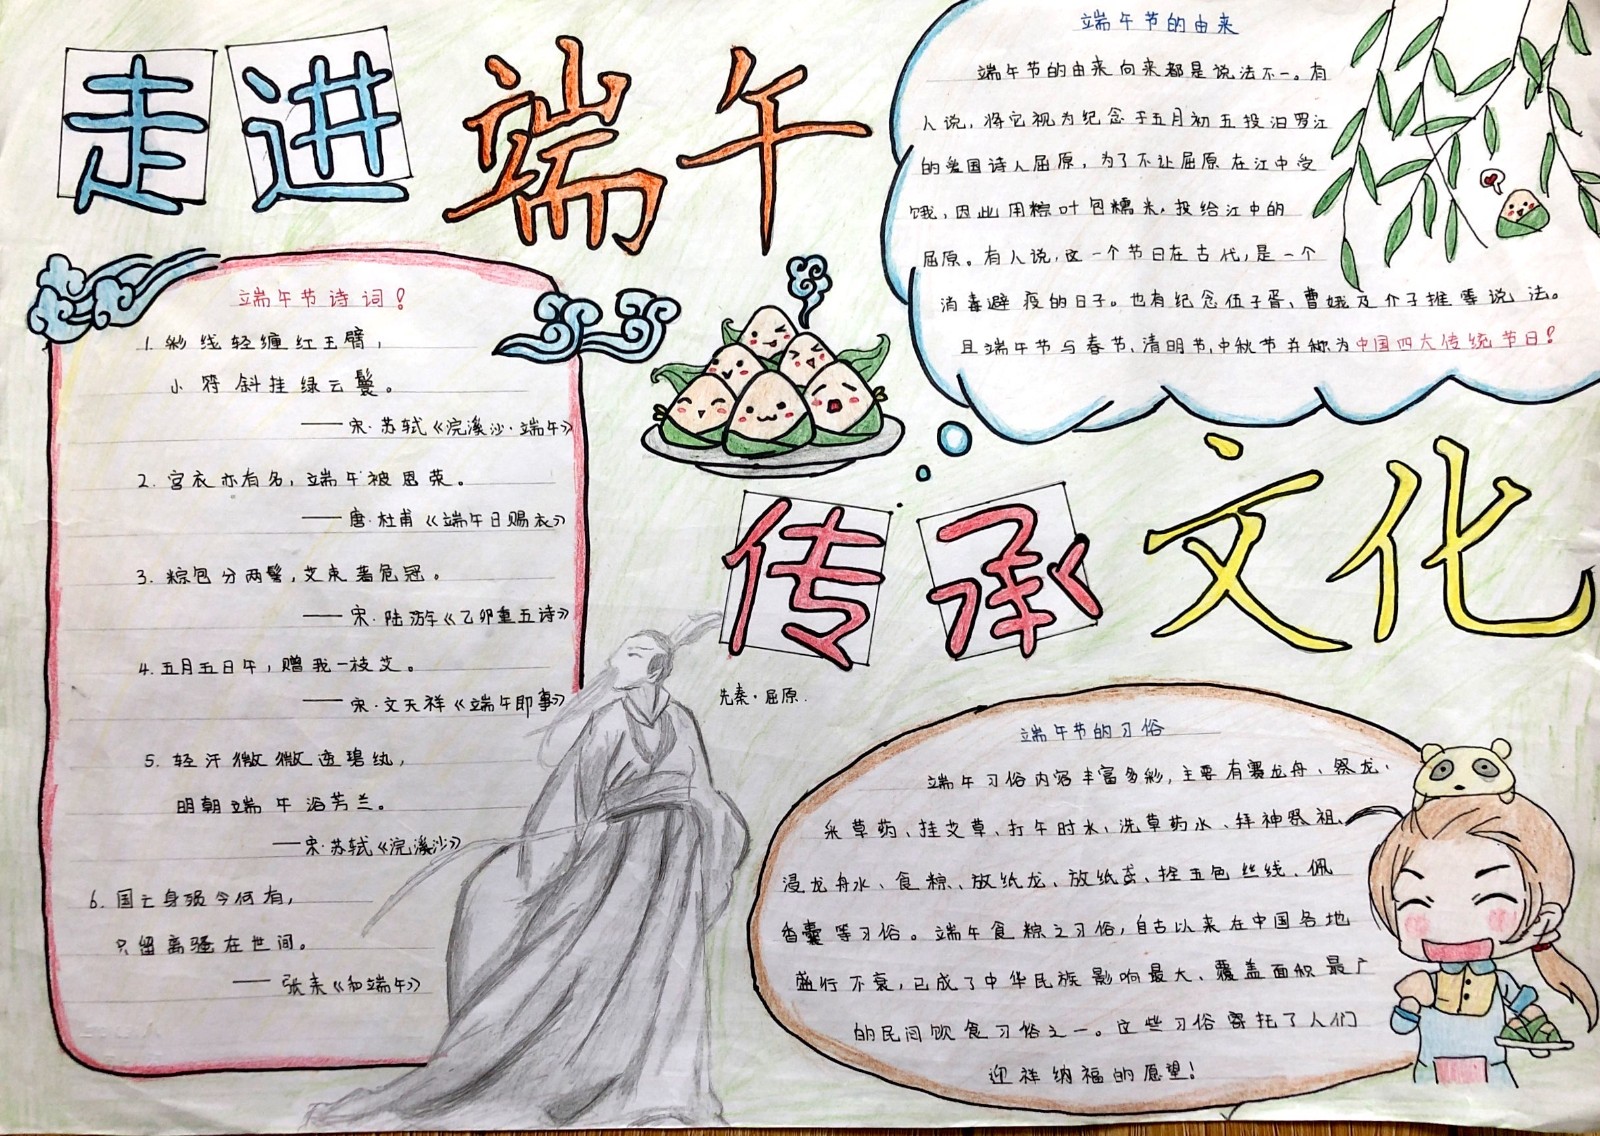 走进端午
端午节诗词！
1. 彩线轻缠红玉臂，
小符斜挂绿云鬓。
——宋·苏轼《浣溪沙·端午》
2. 宫衣亦有名，端午被恩荣。
——唐·杜甫《端午日赐衣》
3. 粽包分两髻，艾束著危冠。
——宋·陆游《乙卯重五诗》
4. 五月五日午，赠我一枝艾。
——宋·文天祥《端午即事》
5. 轻汗微微透碧纨，
明朝端午浴芳兰。
——宋·苏轼《浣溪沙》
6. 国亡身殒今何有，
只留离骚在世间。
——张耒《和端午》
端午节的由来
端午节的由来向来都是说法不一。有
人说，将它视为纪念于五月初五投汨罗江
的爱国诗人屈原，为了不让屈原在江中受
饿，因此用粽叶包糯米，投给江中的
屈原。有人说，这一个节日在古代，是一个
消毒避疫的日子。也有纪念伍子胥，曹娥及介子推等说法。
且端午节与春节、清明节、中秋节并称为中国四大传统节日！
传承文化
先秦·屈原.
端午节的习俗
端午习俗内容丰富多彩，主要有赛龙舟、祭龙、
采草药、挂艾草、打午时水、洗草药水、拜神祭祖、
浸龙舟水、食粽、放纸龙、放纸鸢、拴五色丝线、佩
香囊等习俗。端午食粽之习俗，自古以来在中国各地
盛行不衰，已成了中华民族影响最大、覆盖面积最广
的民间饮食习俗之一。这些习俗寄托了人们
迎祥纳福的愿望！